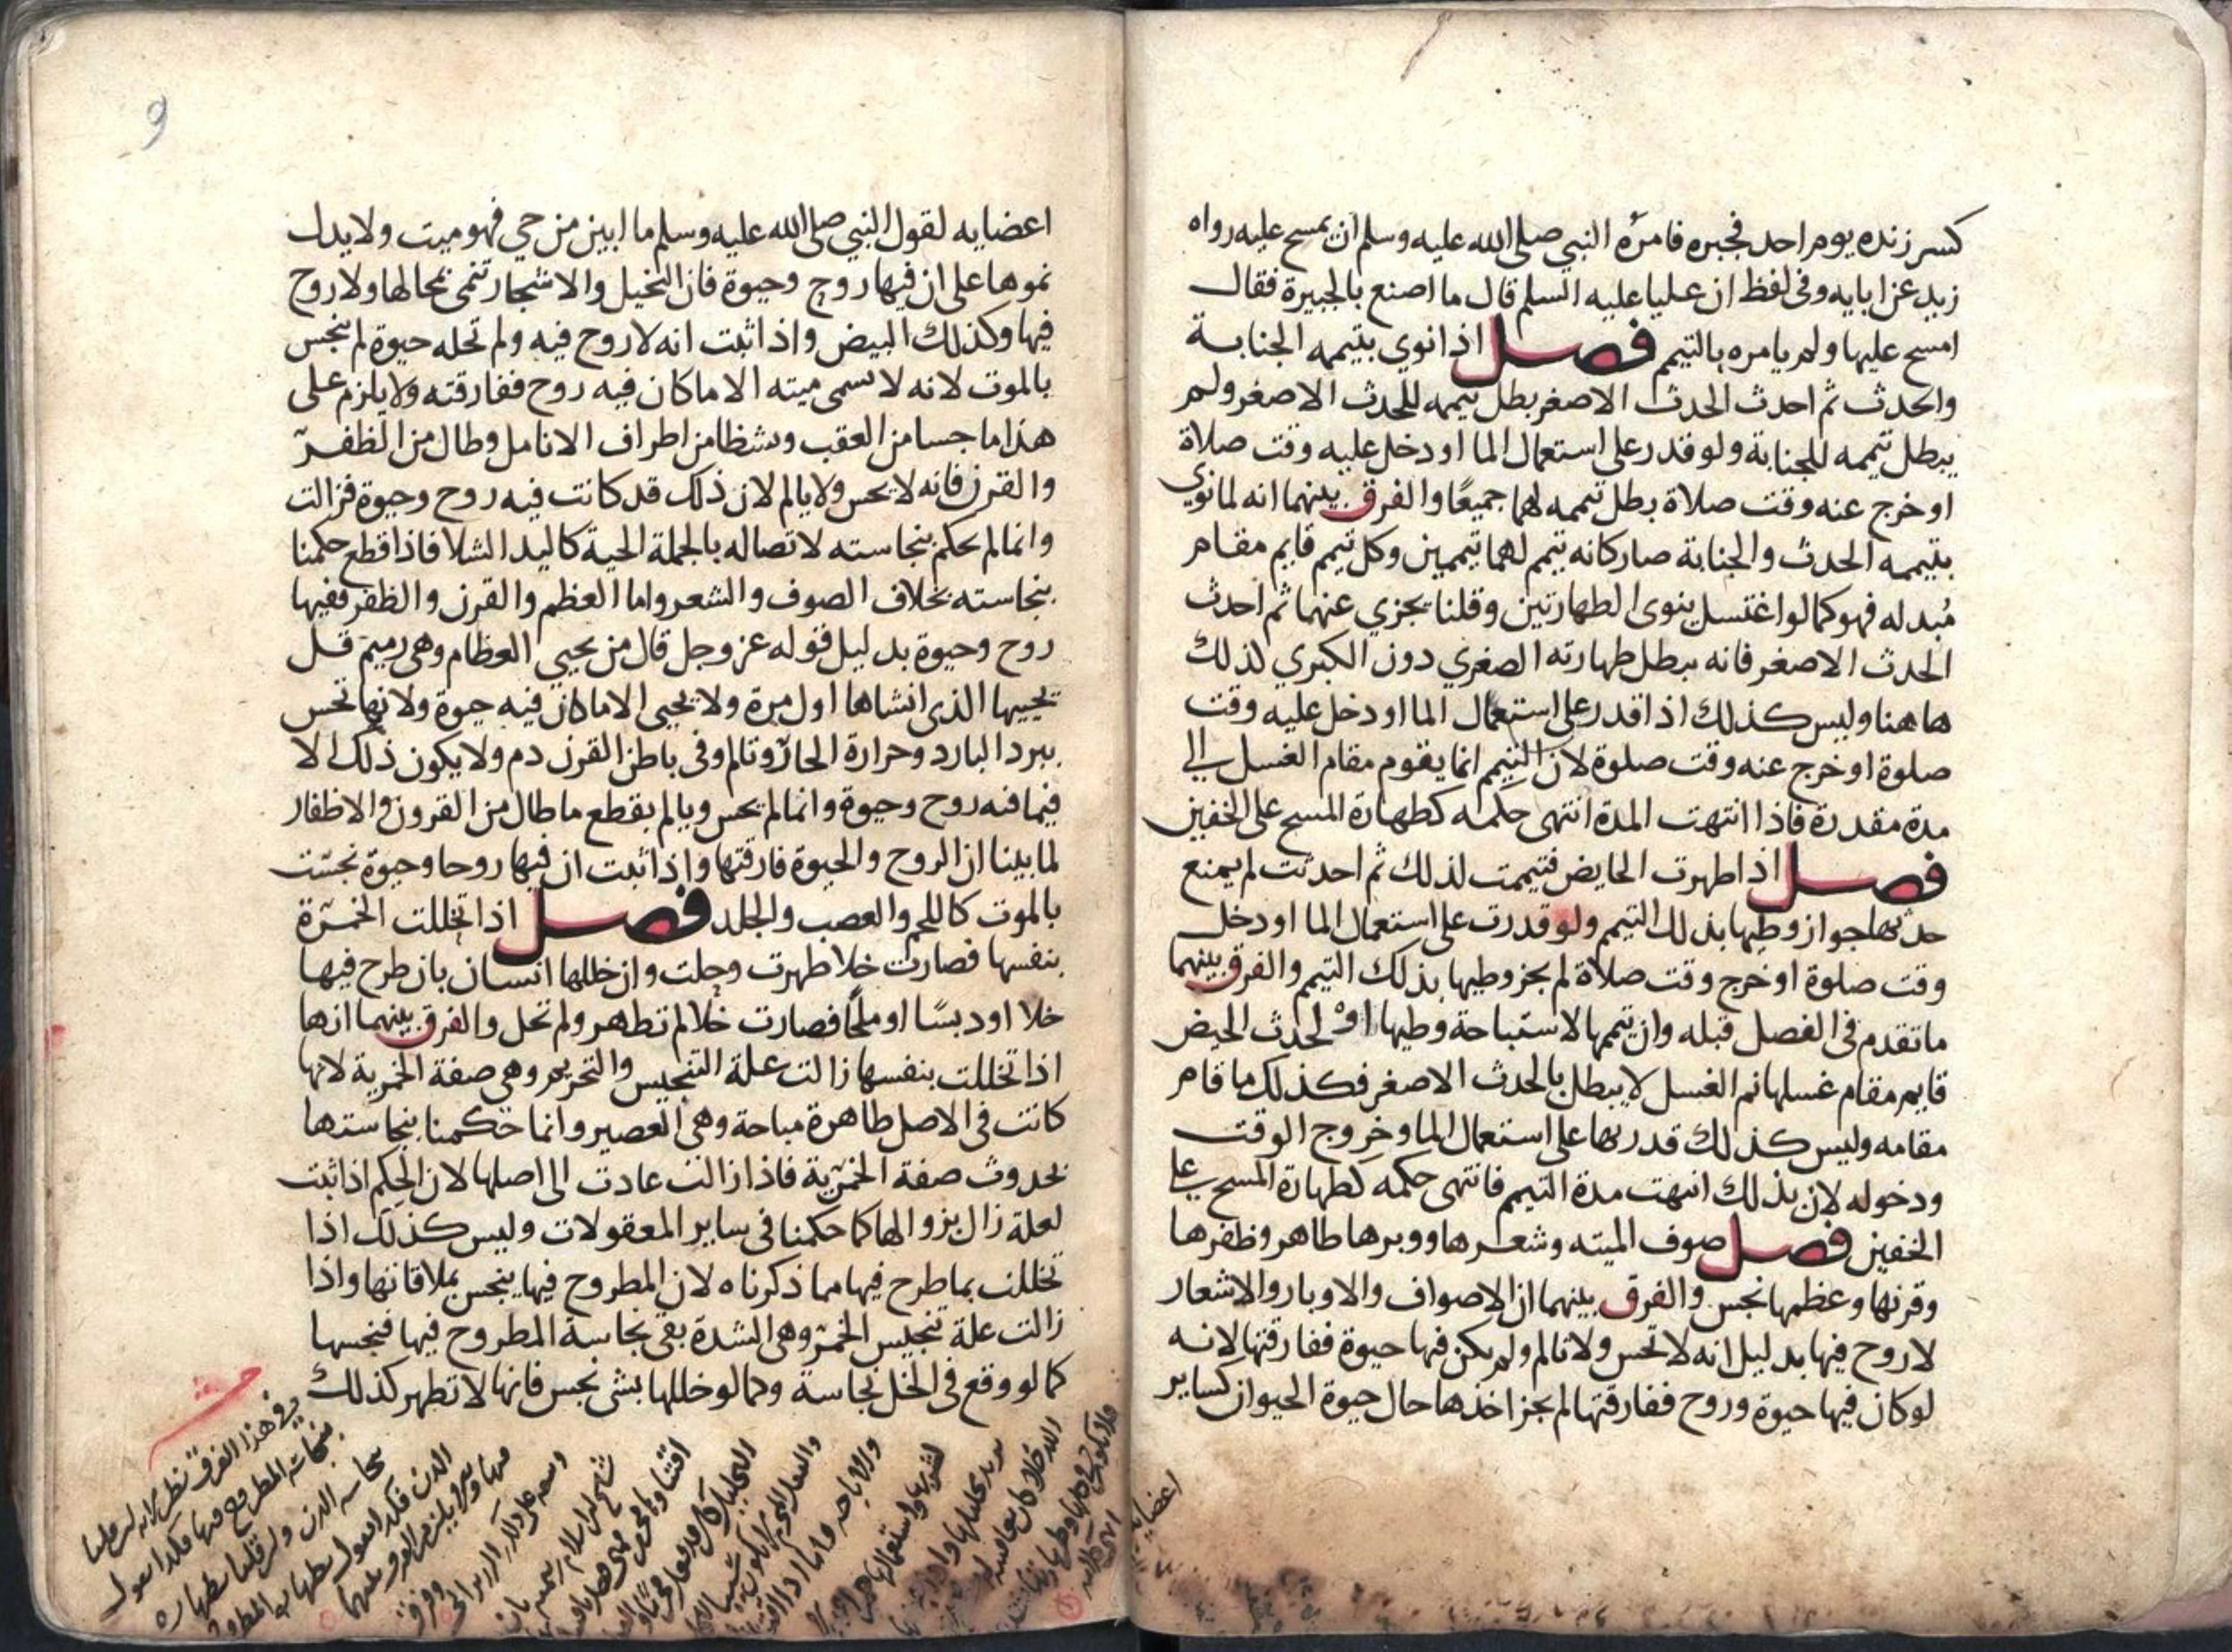 كسر زنده يوم احد فجبره فامره النبي صلى الله عليه وسلم ان يمسح عليه رواه
زيد عن ابايه وفى لفظ ان عليا عليه السلم قال ما اصنع بالجبيرة فقال
امسح عليها ولم يامره بالتيمم فصل اذا نوي بتيممه الجنابة
والحدث ثم احدث الحدث الاصغر بطل تيممه للحدث الاصغر ولم
يبطل تيممه للجنابة ولو قدر على استعمال الما او دخل عليه وقت صلاة
او خرج عنه وقت صلاة بطل تيممه لهما جميعًا والفرق بينهما انه لما نوي
بتيممه الحدث والجنابة صار كانه تيمم لهما تيممين وكل تيمم قايم مقام
مُبدله فهو كما لو اغتسل ينوى الطهارتين وقلنا يجزي عنهما ثم احدث
الحدث الاصغر فانه يبطل طهارته الصغري دون الكبري لذلك
هاهنا وليس كذلك اذا قدر على استعمال الما او دخل عليه وقت
صلوة او خرج عنه وقت صلوة لان التيمم انما يقوم مقام الغسل الي
مدة مقدرة فاذا انتهت المدة انتهى حكمه كطهارة المسح على الخفين
فصل اذا طهرت الحايض فتيممت لذلك ثم احدثت لم يمنع
حدثها جواز وطيها بذلك التيمم ولو قدرت على استعمال الما او دخل
وقت صلوة او خرج وقت صلاة لم يجز وطيها بذلك التيمم والفرق بينهما
ما تقدم فى الفصل قبله وان تيممها لاستباحة وطيها او لحدث الحيض
قايم مقام غسلها ثم الغسل لا يبطل بالحدث الاصغر فكذلك ما قام
مقامه وليس كذلك قدرتها على استعمال الما وخروج الوقت
ودخوله لان بذلك انتهت مدة التيمم فانتهى حكمه كطهارة المسح على
الخفين فصل صوف الميته وشعرها ووبرها طاهر وظفرها
وقرنها وعظمها نجس والفرق بينهما ان الاصواف والاوبار والاشعار
لا روح فيها بدليل انه لا تحس ولا تالم ولم يكن فيها حيوة ففارقتها لانه
لو كان فيها حيوة وروح ففارقتها لم يجز اخذها حال حيوة الحيوان كساير
اعضايه
9
اعضايه لقول النبي صلى الله عليه وسلم ما ابين من حي فهو ميت ولا يدل
نموها على ان فيها روح وحيوة فان النخيل والاشجار تنمى بحالها ولا روح
فيها وكذلك البيض واذا ثبت انه لا روح فيه ولم تحله حيوة لم ينجس
بالموت لانه لا يسمى ميته الا ما كان فيه روح ففارقته ولا يلزم على
هذا ما جسا من العقب وشظا من اطراف الانامل وطال من الظفر
والقرن فانه لا يحس ولا يالم لان ذلك قد كانت فيه روح وحيوة فزالت
وانما لم يحكم بنجاسته لاتصاله بالجملة الحية كاليد الشلا فاذا قطع حكمنا
بنجاسته بخلاف الصوف والشعر واما العظم والقرن والظفر ففيها
روح وحيوة بدليل قوله عز وجل قال من يحيي العظام وهى رميم قل
يحييها الذى انشاها اول مرة ولا يحيى الا ما كان فيه حيوة ولانها تحس
ببرد البارد وحرارة الحار وتالم وفى باطن القرن دم ولا يكون ذلك الا
فيما فيه روح وحيوة وانما لم يحس ويالم بقطع ما طال من القرون والاظفار
لما بينا ان الروح والحيوة فارقتها واذا ثبت ان فيها روحا وحيوة نجست
بالموت كاللحم والعصب والجلد فصل اذا تخللت الخمرة
بنفسها فصارت خلا طهرت وحلت وان خللها انسان بان طرح فيها
خلا او دبسًا او ملحًا فصارت خلا لم تطهر ولم تحل والفرق بينهما انها
اذا تخللت بنفسها زالت علة التنجيس والتحريم وهى صفة الخمرية لانها
كانت فى الاصل طاهرة مباحة وهى العصير وانما حكمنا بنجاستها
بحدوث صفة الخمرية فاذا زالت عادت الى اصلها لان الحكم اذا ثبت
لعلة زال بزوالها كما حكمنا فى ساير المعقولات وليس كذلك اذا
تخللت بما طرح فيها مما ذكرناه لان المطروح فيها ينجس بملاقاتها واذا
زالت علة تنجيس الخمر وهى الشدة بقى نجاسة المطروح فيها فنجسها
كما لو وقع فى الخل نجاسة وكما لو خللها بشى نجس فانها لا تطهر كذلك
وفى هذا الفرق نظر لانه